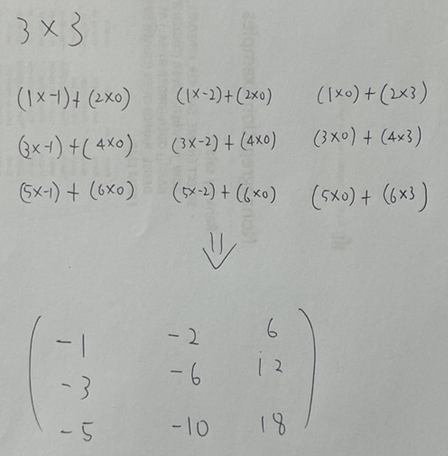 3 × 3
(1×-1)+(2×0) (1×-2)+(2×0) (1×0)+(2×3)
(3×-1)+(4×0) (3×-2)+(4×0) (3×0)+(4×3)
(5×-1)+(6×0) (5×-2)+(6×0) (5×0)+(6×3)
⇓
-1 -2 6
-3 -6 12
-5 -10 18